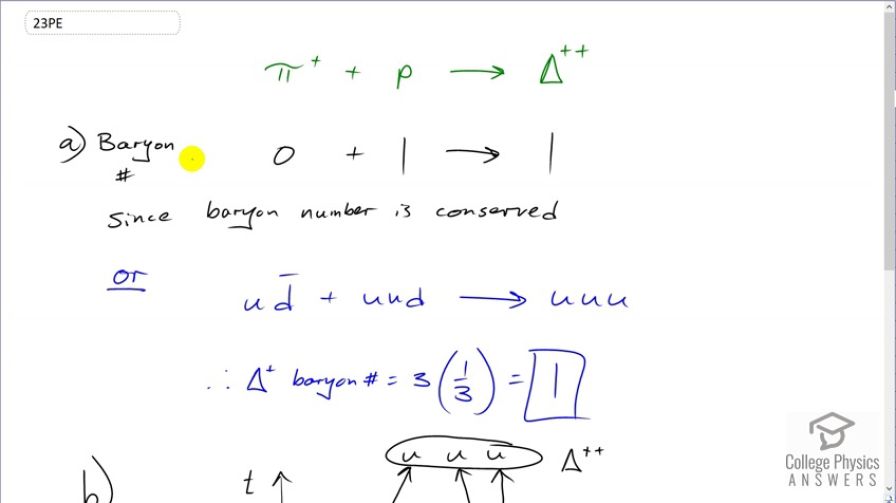 23PE
π⁺ + p → Δ⁺⁺
a) Baryon # 0 + 1 → 1
Since baryon number is conserved
or
u d̅ + uud → uuu
∴ Δ⁺ baryon # = 3 (1/3) = 1
b) t ↑ u u u̅ Δ⁺⁺
College Physics
ANSWERS